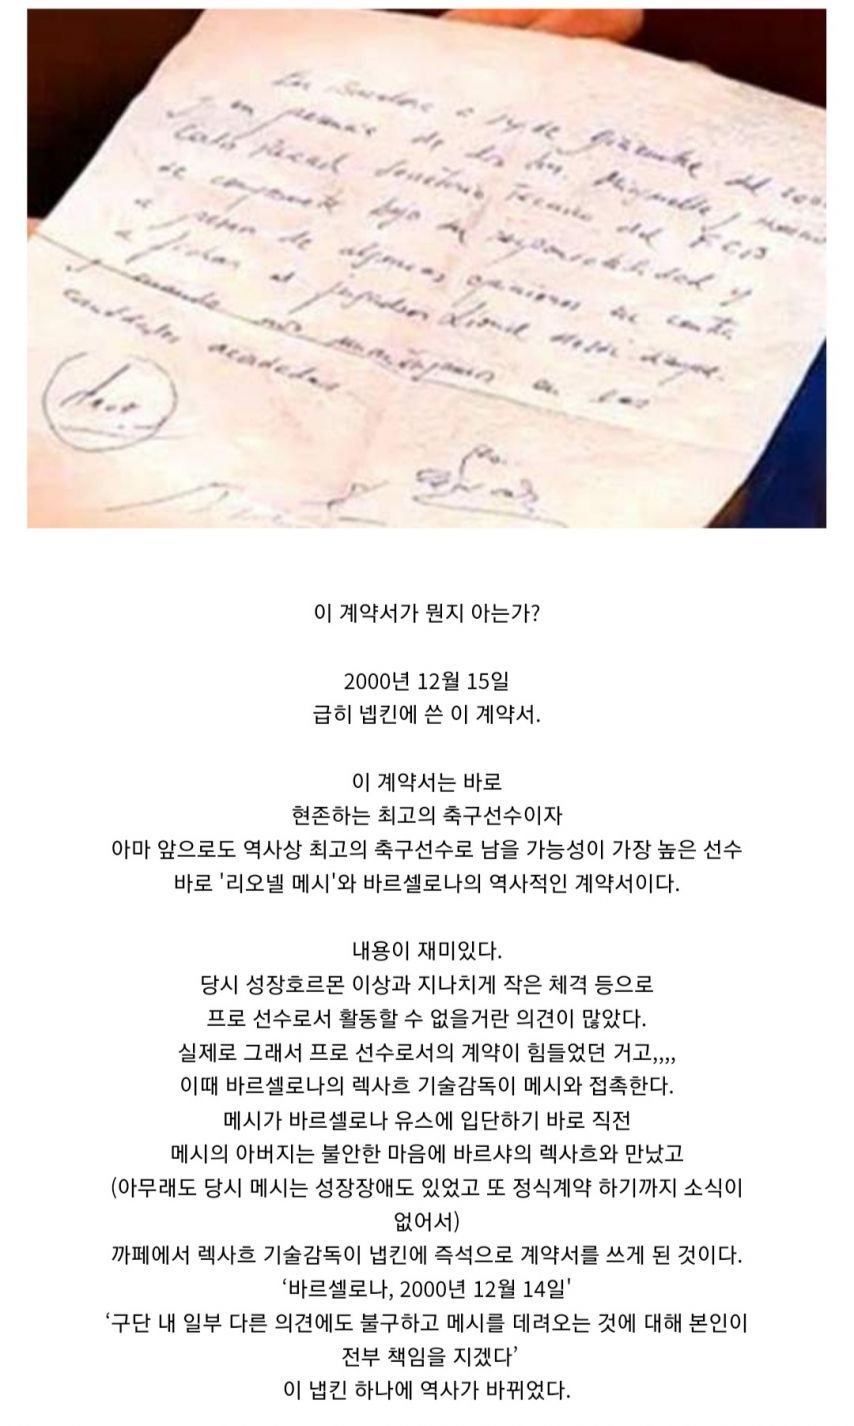 en presencia de los Sres. Minguella y Horacio
Carlos Rexach Secretario Técnico del F.C.B
se compromete bajo su responsabilidad y
a pesar de algunas opiniones en contra
a fichar al jugador Lionel Messi
y cuando nos mantengamos en las
cantidades acordadas
이 계약서가 뭔지 아는가?
2000년 12월 15일
급히 넵킨에 쓴 이 계약서.
이 계약서는 바로
현존하는 최고의 축구선수이자
아마 앞으로도 역사상 최고의 축구선수로 남을 가능성이 가장 높은 선수
바로 '리오넬 메시'와 바르셀로나의 역사적인 계약서이다.
내용이 재미있다.
당시 성장호르몬 이상과 지나치게 작은 체격 등으로
프로 선수로서 활동할 수 없을거란 의견이 많았다.
실제로 그래서 프로 선수로서의 계약이 힘들었던 거고,,,,
이때 바르셀로나의 렉사흐 기술감독이 메시와 접촉한다.
메시가 바르셀로나 유스에 입단하기 바로 직전
메시의 아버지는 불안한 마음에 바르샤의 렉사흐와 만났고
(아무래도 당시 메시는 성장장애도 있었고 또 정식계약 하기까지 소식이
없어서)
까페에서 렉사흐 기술감독이 냅킨에 즉석으로 계약서를 쓰게 된 것이다.
‘바르셀로나, 2000년 12월 14일'
‘구단 내 일부 다른 의견에도 불구하고 메시를 데려오는 것에 대해 본인이
전부 책임을 지겠다’
이 냅킨 하나에 역사가 바뀌었다.